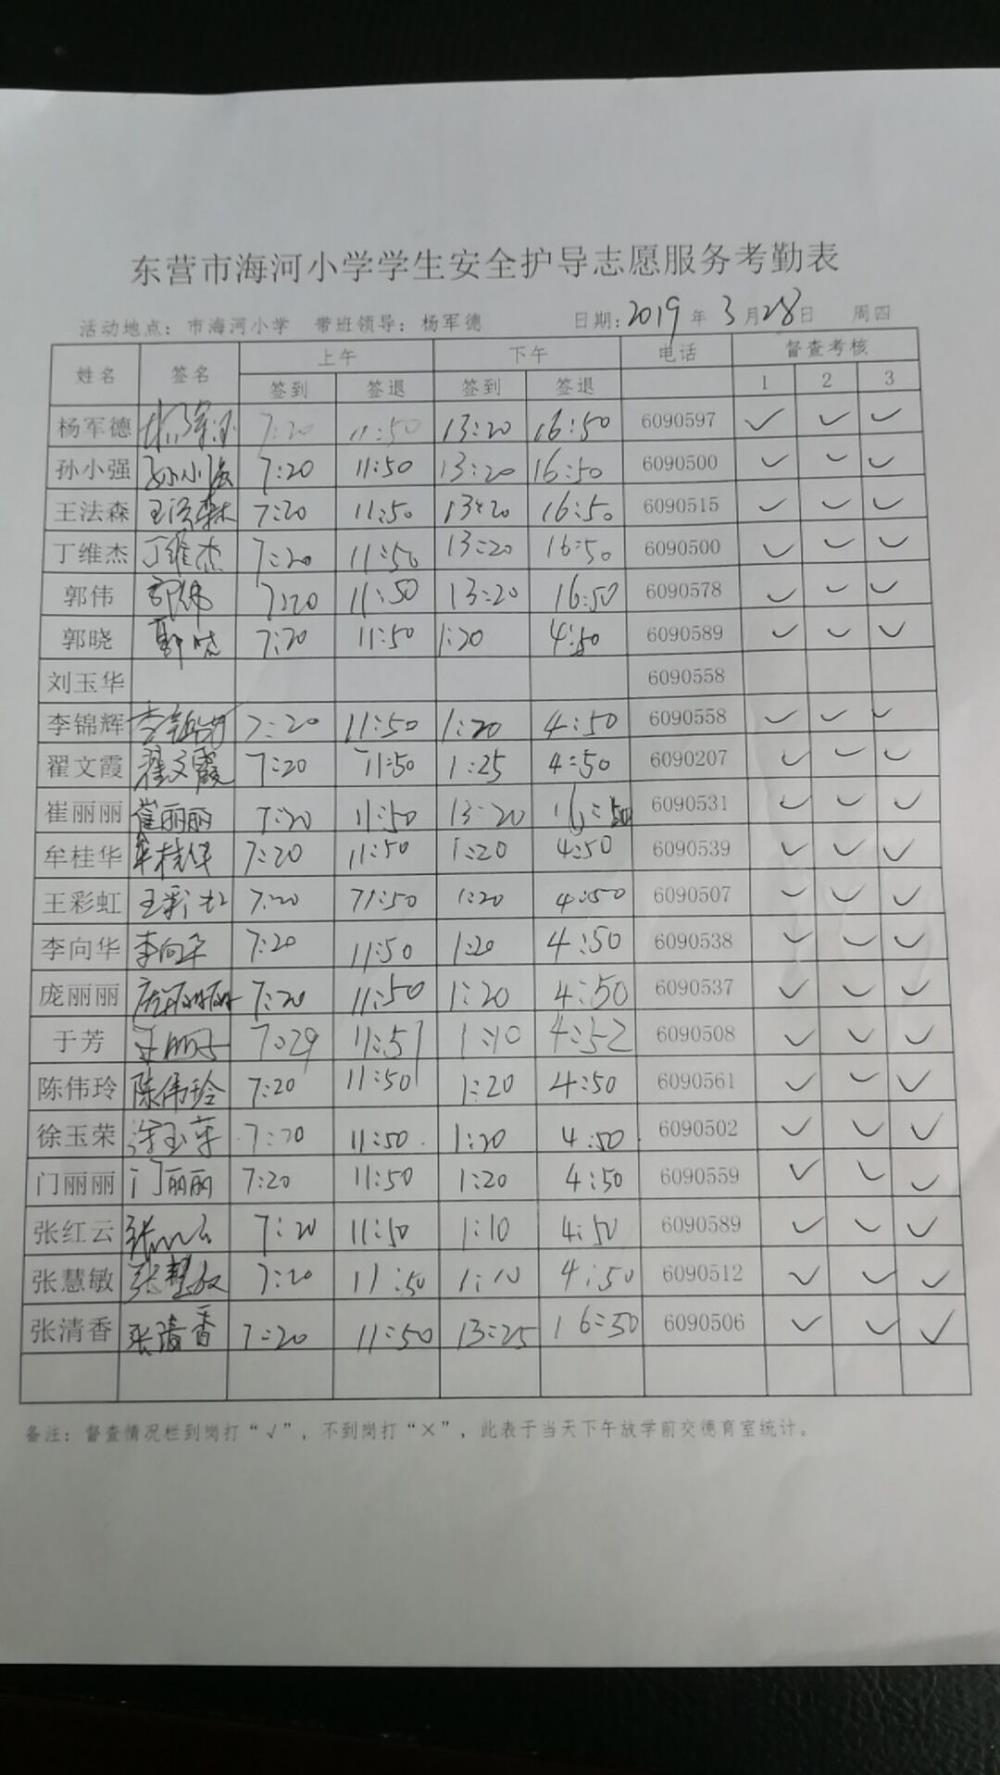 东营市海河小学学生安全护导志愿服务考勤表
活动地点：市海河小学 带班领导：杨军德 日期：2019年3月28日 周四
姓名 签名 上午 下午 电话 督查考核
签到 签退 签到 签退 1 2 3
杨军德 7:20 11:50 13:20 16:50 6090597 ✓ ✓ ✓
孙小强 孙小强 7:20 11:50 13:20 16:50 6090500 ✓ ✓ ✓
王法森 王法森 7:20 11:50 13:20 16:50 6090515 ✓ ✓ ✓
丁维杰 丁维杰 7:20 11:50 13:20 16:50 6090500 ✓ ✓ ✓
郭伟 郭伟 7:20 11:50 13:20 16:50 6090578 ✓ ✓ ✓
郭晓 郭晓 7:20 11:50 1:20 4:50 6090589 ✓ ✓ ✓
刘玉华 6090558
李锦辉 李锦辉 7:20 11:50 1:20 4:50 6090558 ✓ ✓ ✓
翟文霞 翟文霞 7:20 11:50 1:25 4:50 6090207 ✓ ✓ ✓
崔丽丽 崔丽丽 7:20 11:50 13:20 16:50 6090531 ✓ ✓ ✓
牟桂华 牟桂华 7:20 11:50 1:20 4:50 6090539 ✓ ✓ ✓
王彩虹 王彩虹 7:20 11:50 1:20 4:50 6090507 ✓ ✓ ✓
李向华 李向华 7:20 11:50 1:20 4:50 6090538 ✓ ✓ ✓
庞丽丽 庞丽丽 7:20 11:50 1:20 4:50 6090537 ✓ ✓ ✓
于芳 7:29 11:51 1:10 4:52 6090508 ✓ ✓ ✓
陈伟玲 陈伟玲 7:20 11:50 1:20 4:50 6090561 ✓ ✓ ✓
徐玉荣 徐玉荣 7:20 11:50 1:20 4:50 6090502 ✓ ✓ ✓
门丽丽 门丽丽 7:20 11:50 1:20 4:50 6090559 ✓ ✓ ✓
张红云 张红云 7:20 11:50 1:10 4:50 6090589 ✓ ✓ ✓
张慧敏 张慧敏 7:20 11:50 1:10 4:50 6090512 ✓ ✓ ✓
张清香 张清香 7:20 11:50 13:25 16:50 6090506 ✓ ✓ ✓
备注：督查情况栏到岗打“√”，不到岗打“×”，此表于当天下午放学前交德育室统计。